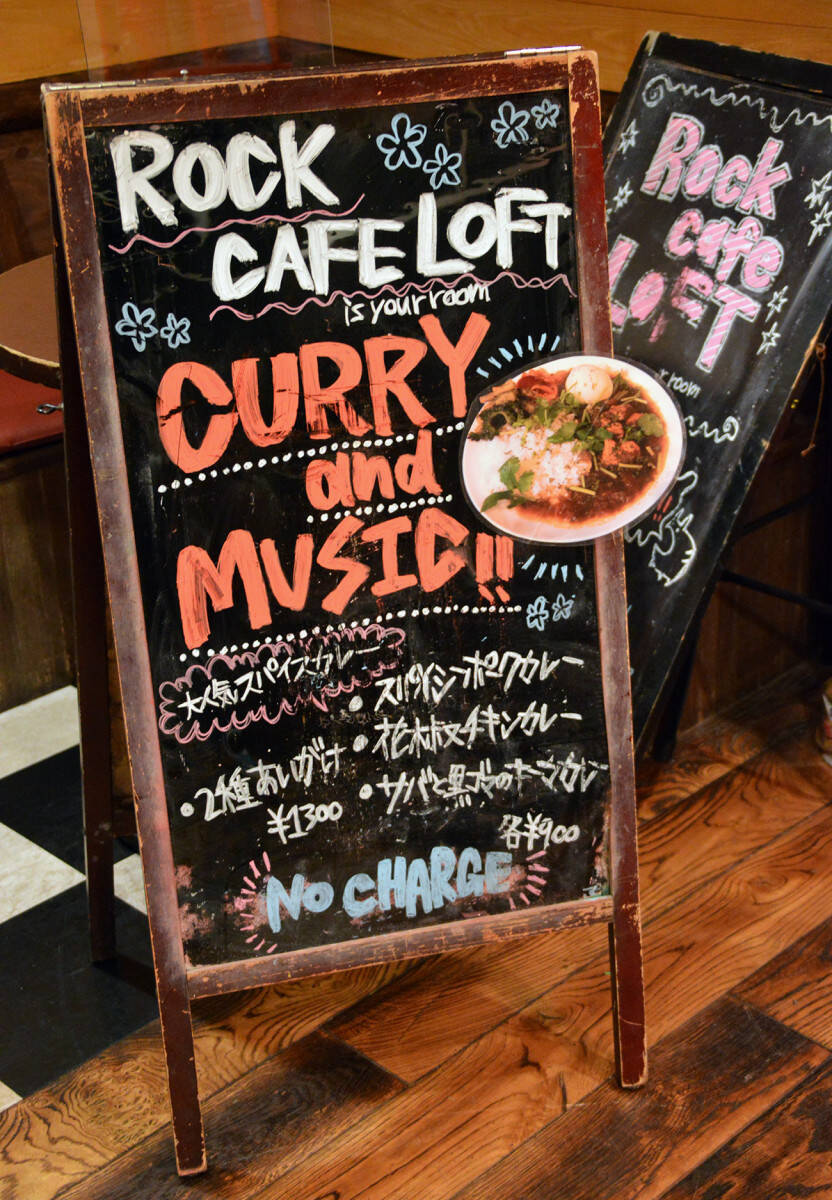 ROCK
CAFE LOFT
is your room
CURRY
and
MUSIC!!
大人気スパイスカレー
・スパイシーポークカレー
・花椒チキンカレー
・サバと黒ゴマのキーマカレー
各¥900
・2種あいがけ
¥1300
NO CHARGE
Rock
cafe
LOFT
room